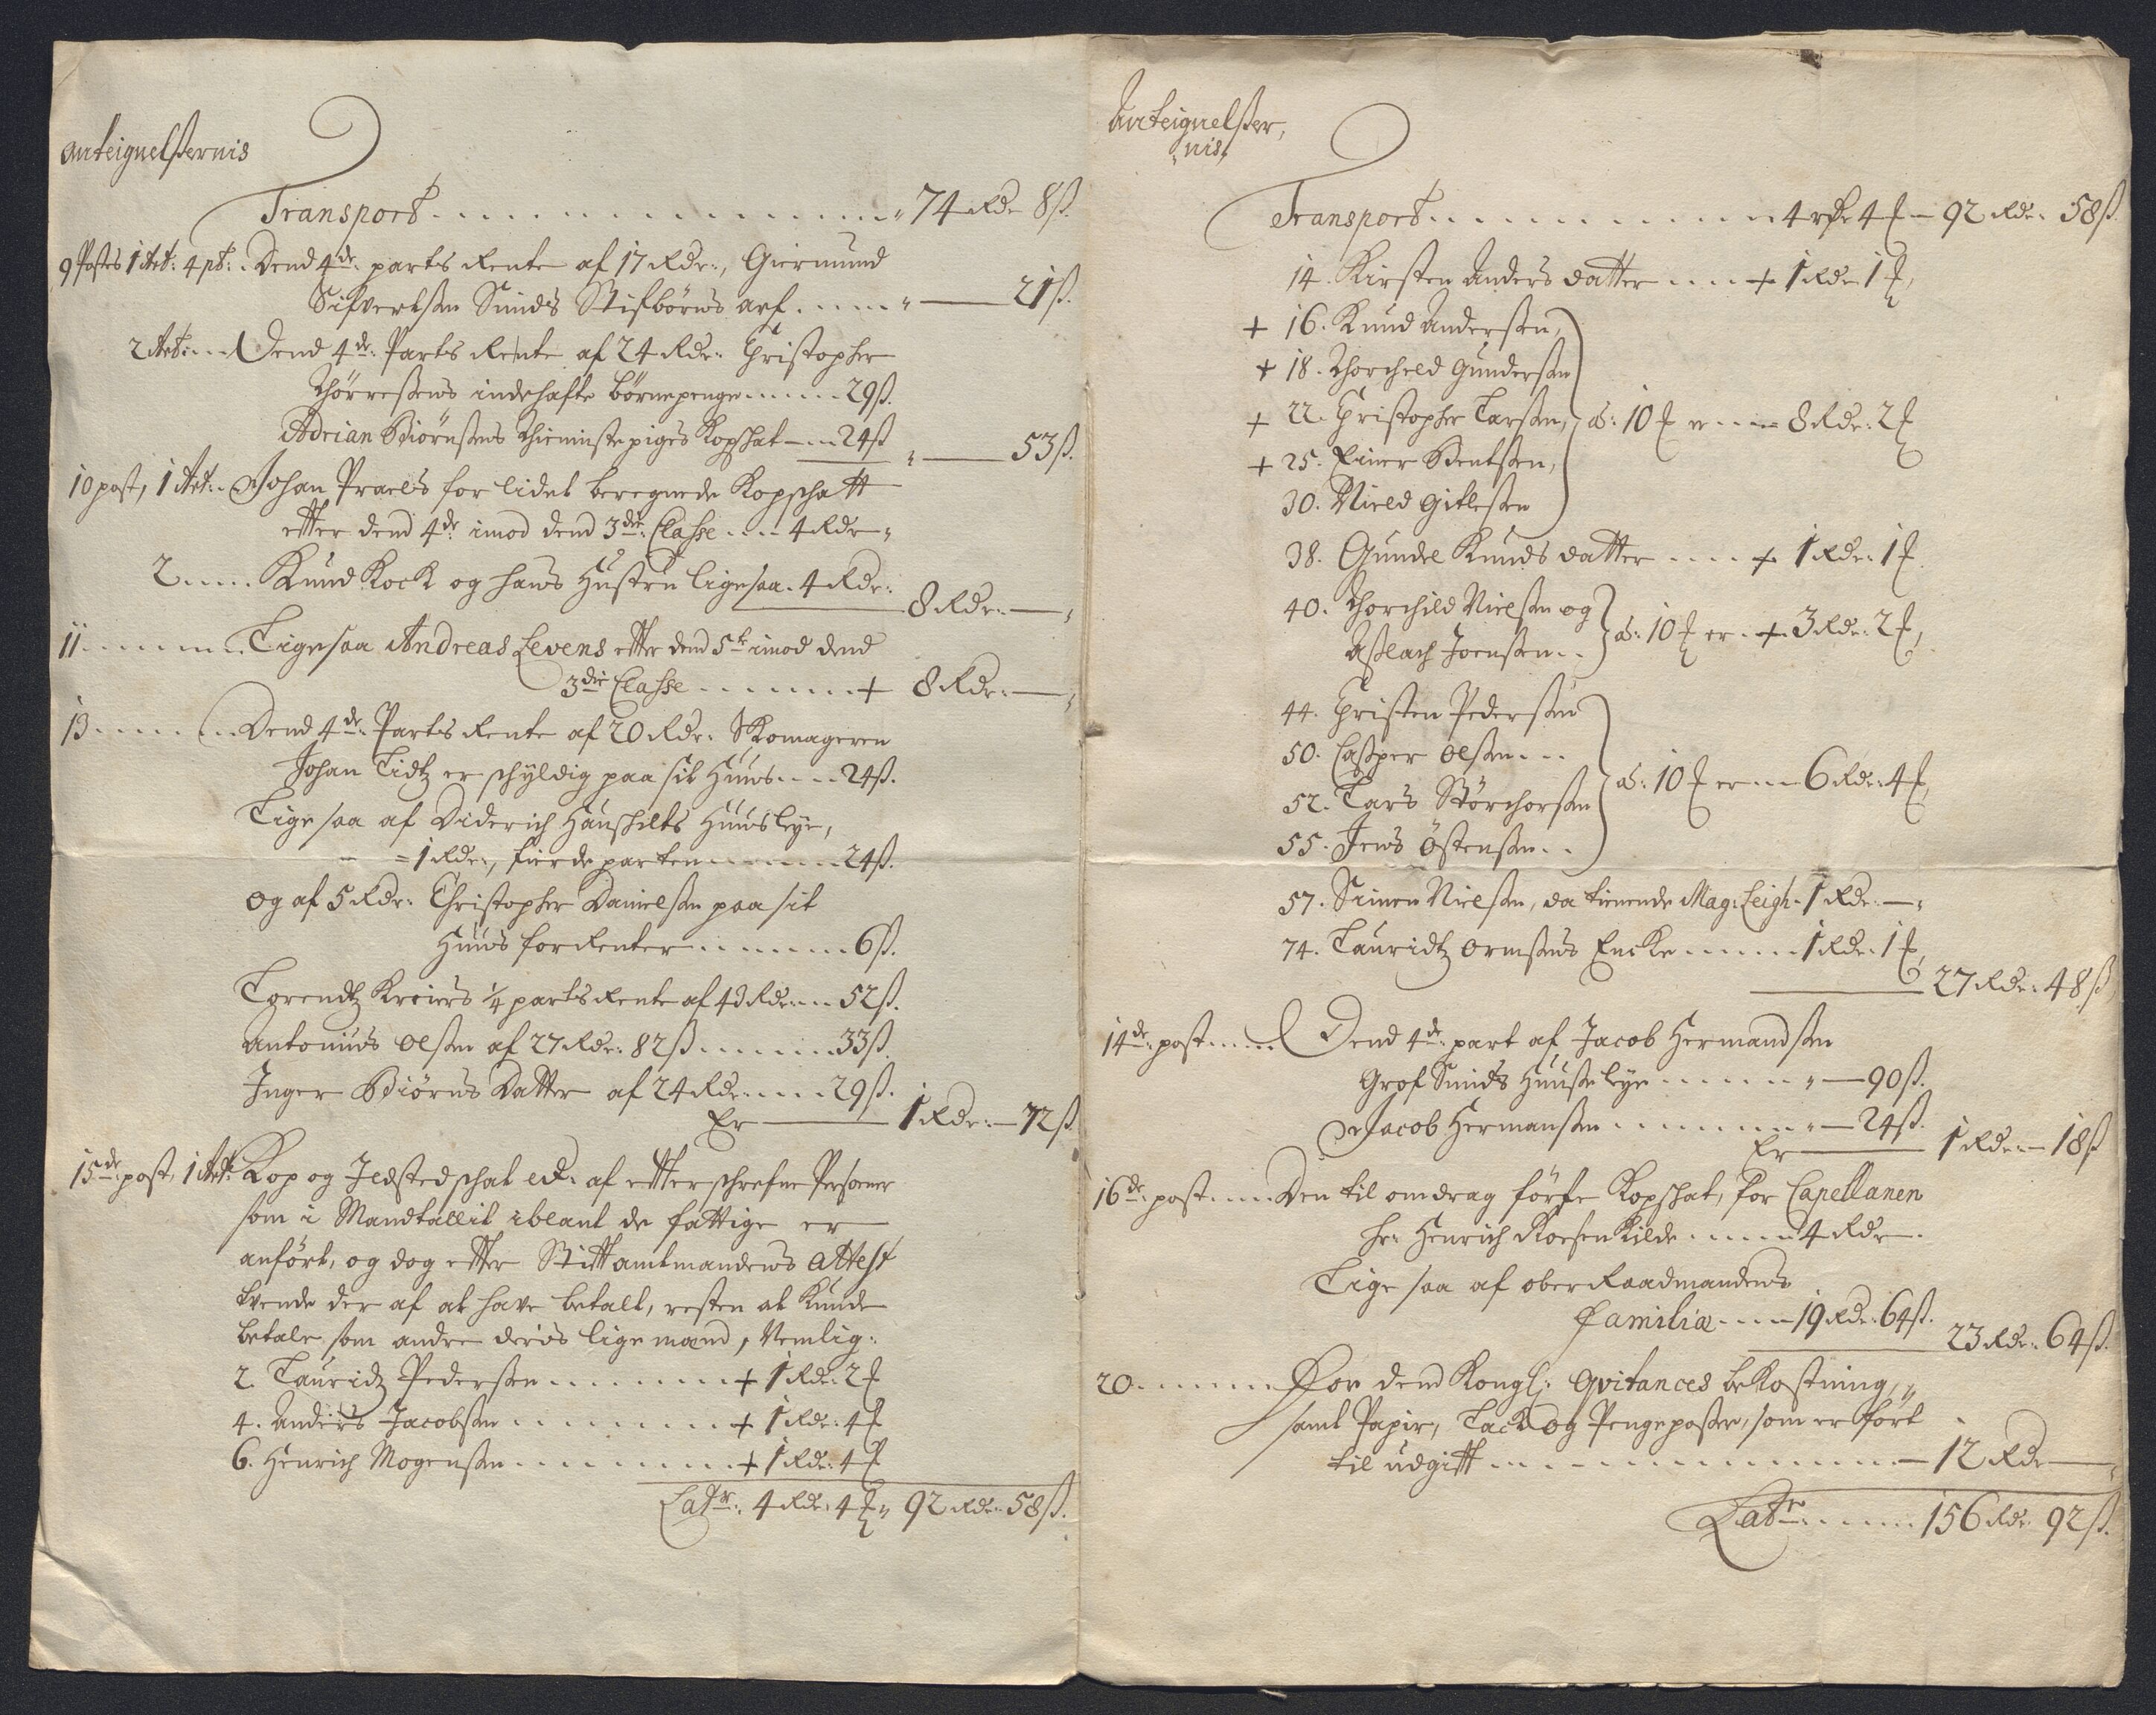 Anteignelsßernis
Transport . . . . . . . . . . . . . . . 74 Rdr 8ß.
9 Postes 1 Art: 4 pt: . Dend 4de parts Rente af 17 Rdr:, Giermund
Sifvertsßen Sunds Stifbörns arf . . . . . — 21ß.
2 Art: . . . Dend 4de Parts Rente af 24 Rdr: Christopher
Thörresßens indehafte börnepenge . . . . . . 29ß.
Adrian Biörnsßens thienniste piges Kopschat — . . 24ß
— 53ß.
10 post, 1 Art: . . Johan Praels for lidet beregnede Kopschatt
efter dend 4de imod dend 3die Classe . . . . 4 Rdr
2 . . . . . Knud Kock og hans Hustru lige saa . 4 Rdr:
8 Rdr: —
11 . . . . . . . Lige saa Andreas Levens efter dend 5te imod dend
3die Classe . . . . . . . + 8 Rdr: —
13 . . . . . . . Dend 4de Parts Rente af 20 Rdr: Skomageren
Johan Tidtz er schyldig paa sit Huus . . . . 24ß.
Lige saa af Diderich Haushilts Huusleye,
= 1 Rdr:, fierde parten . . . . . . . . 24ß.
og af 5 Rdr: Christopher Danielsßen paa sit
Huus for Renter . . . . . . . . 6ß.
Lorendtz Kreiers 1/4 parts Rente af 43 Rdr: . . . 52ß.
Antonius Olsßen af 27 Rdr: 82ß . . . . . . . 33ß.
Inger Biörns Datter af 24 Rdr . . . . . 29ß.
Er — 1 Rdr: — 72ß.
15de post, 1 Art: Kop og Ildstedschat etc. af efterschrefne Personer
som i Mandtallit iblant de fattige er
anfört, og dog efter Stiftamtmandens Attest
tvende der af at have betalt, resten at kunde
betale som andre deris lige mænd, Nemlig:
2. Lauridtz Pedersßen . . . . . . . . + 1 Rdr: 2 ₻
4. Anders Jacobsßen . . . . . . . . . + 1 Rdr: 4 ₻
6. Henrich Mogensßen . . . . . . . . + 1 Rdr: 4 ₻
Latr: 4 Rdr: 4 ₻ 92 Rdr: 58ß.
Anteignelsßer,
nis,
Transport . . . . . . . . . . . . . 4 rdr 4 ₻ — 92 Rdr: 58ß.
14. Kirsten Anders datter . . . . + 1 Rdr 1 ₻,
+ 16. Knud Andersßen,
+ 18. Thorcheld Gundersßen
+ 22. Christopher Larsßen, a: 10 ₻ er . . . . 8 Rdr: 2 ₻
+ 25. Einer Bentsßen,
30. Nield Gitlesßen
38. Gundel Knuds datter . . . . + 1 Rdr: 1 ₻.
40. Thorchild Nielsßen og
Asßlach Joensßen . . a: 10 ₻ er . + 3 Rdr: 2 ₻,
44. Christen Pedersßen
50. Casper Olsßen . . .
52. Lars Störchorsßen a: 10 ₻ er . . . 6 Rdr: 4 ₻,
55. Jens Östensßen . .
57. Simen Nielsßen, da tienende Mag: Leigh - 1 Rdr: —
74. Lauridtz Ormsßens Encke . . . . . 1 Rdr: 1 ₻,
27 Rdr: 48ß
14de post . . . . Dend 4de part af Jacob Hermandsßen
Grof Smids Huusßleye . . . . . . — 90ß.
Jacob Hermansßen . . . . . . . . — 24ß.
Er — 1 Rdr: — 18ß
16de post . . . . Den til omdrag förste Kopschat, for Capellanen
hr: Henrich Rosenkilde . . . . . 4 Rdr.
Lige saa af ober Raadmandens
Familiæ . . . . 19 Rdr: 64ß.
23 Rdr: 64ß.
20 . . . . . . . For dend Kongl: Qvitances bekostning,
samt Papir, Lack og Pengeposße, som er fört
til udgift . . . . . . . . . . . . . . . — 12 Rdr —
Latr . . . . . . . 156 Rdr 92ß.